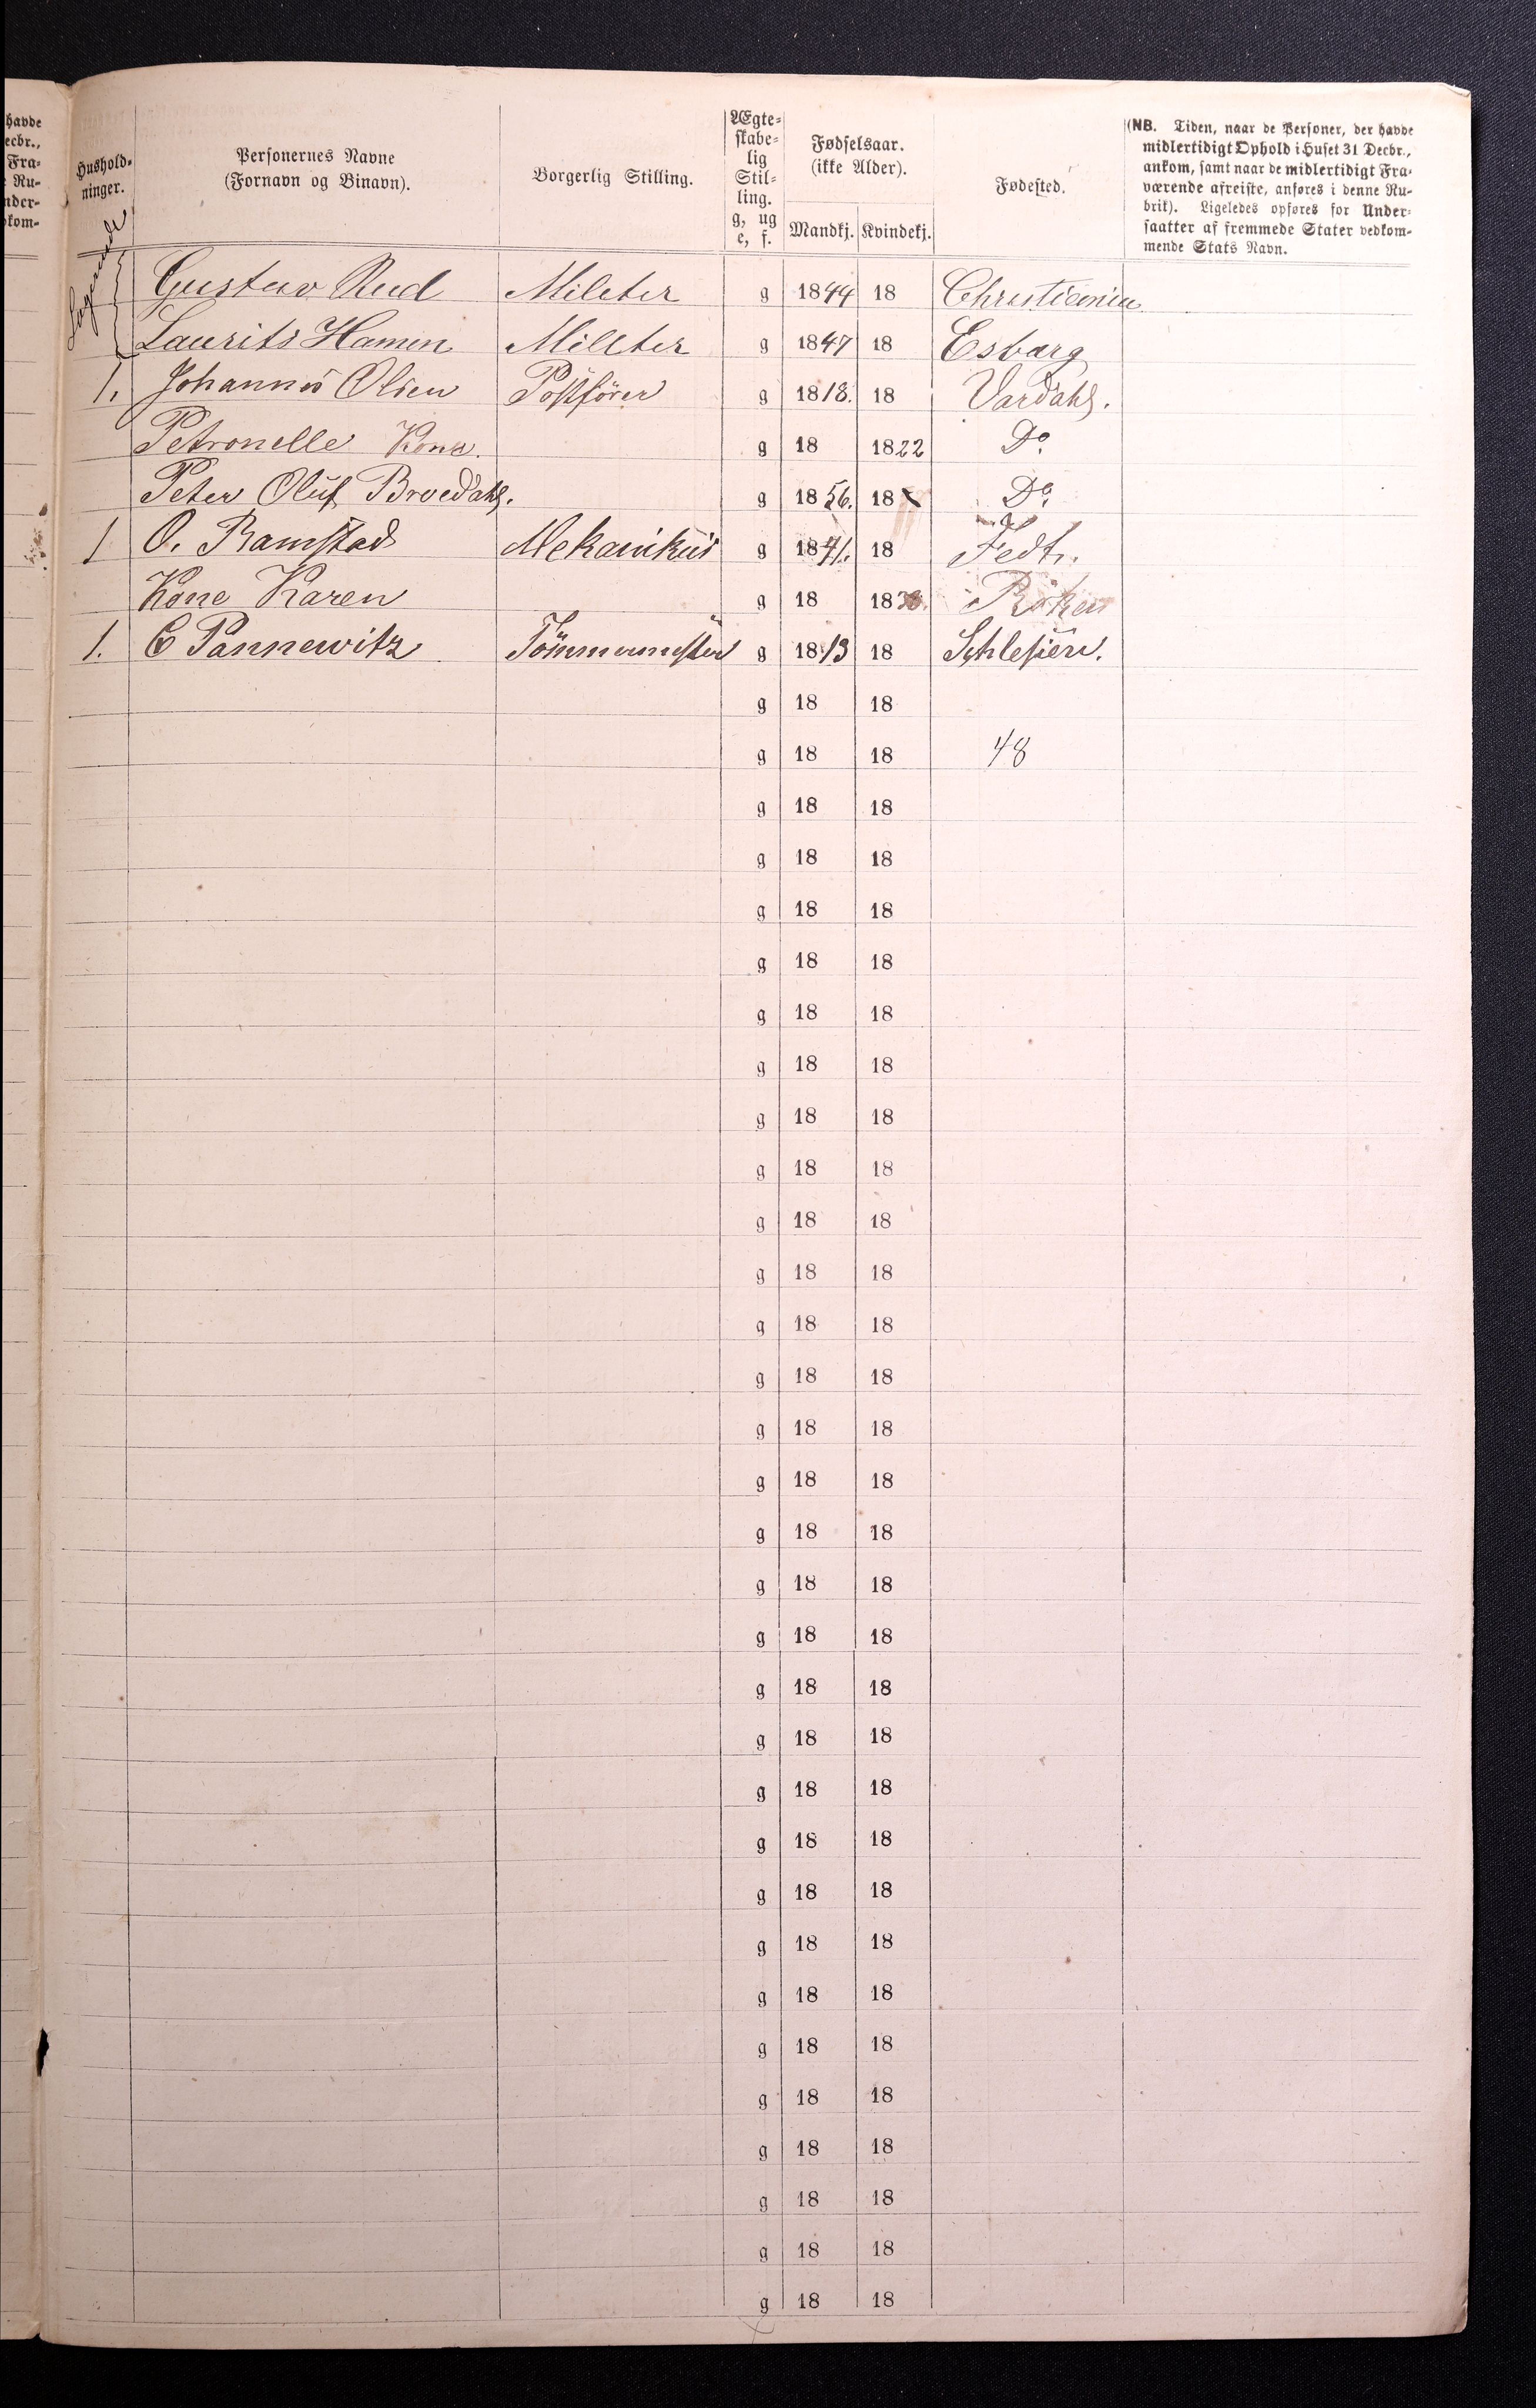 havde
ecbr.,
Fra-
Ru-
nder-
dkom-
Hushold-
ninger.
Personernes Navne
(Fornavn og Binavn).
Borgerlig Stilling.
Ægte-
skabe-
lig
Stil-
ling.
g, ug
e, f.
Fødselsaar.
(ikke Alder).
Mandkj. Kvindekj.
Fødested.
(NB. Tiden, naar de Personer, der havde
midlertidigt Ophold i Huset 31 Decbr.,
ankom, samt naar de midlertidigt Fra-
værende afreiste, anføres i denne Ru-
brik). Ligeledes opføres for Under-
saatter af fremmede Stater vedkom-
mende Stats Navn.
Logerende
Gustav Rud Militer g 1844 18 Christiania
Laurits Militer g 1847 18
1. Johannes Olsen Postfører g 1818. 18 Vardahl.
Petronelle Kone. g 18 1822 Do.
Peter Oluf Broedahl. g 1856. 18 Do.
1 O. Ramstad Mekanikus g 1841. 18
Kone Karen g 18 18 Röken
1. C Pannewitz Tömmermester g 1813 18 Schlesien.
g 18 18
g 18 18 48
g 18 18
g 18 18
g 18 18
g 18 18
g 18 18
g 18 18
g 18 18
g 18 18
g 18 18
g 18 18
g 18 18
g 18 18
g 18 18
g 18 18
g 18 18
g 18 18
g 18 18
g 18 18
g 18 18
g 18 18
g 18 18
g 18 18
g 18 18
g 18 18
g 18 18
g 18 18
g 18 18
g 18 18
g 18 18
g 18 18